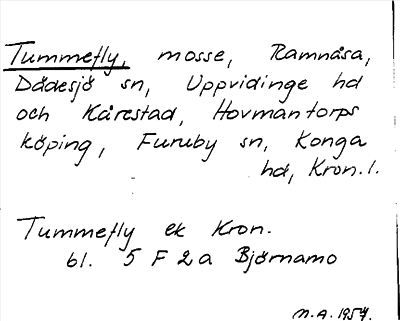 Tummefly, mosse, Ramnåsa,
Dädesjö sn, Uppvidinge hd
och Kårestad, Hovmantorps
köping, Furuby sn, Konga
hd, Kron. l.
Tummefly ek Kron.
bl. 5 F 2 a Björnamo
M.A. 1957.